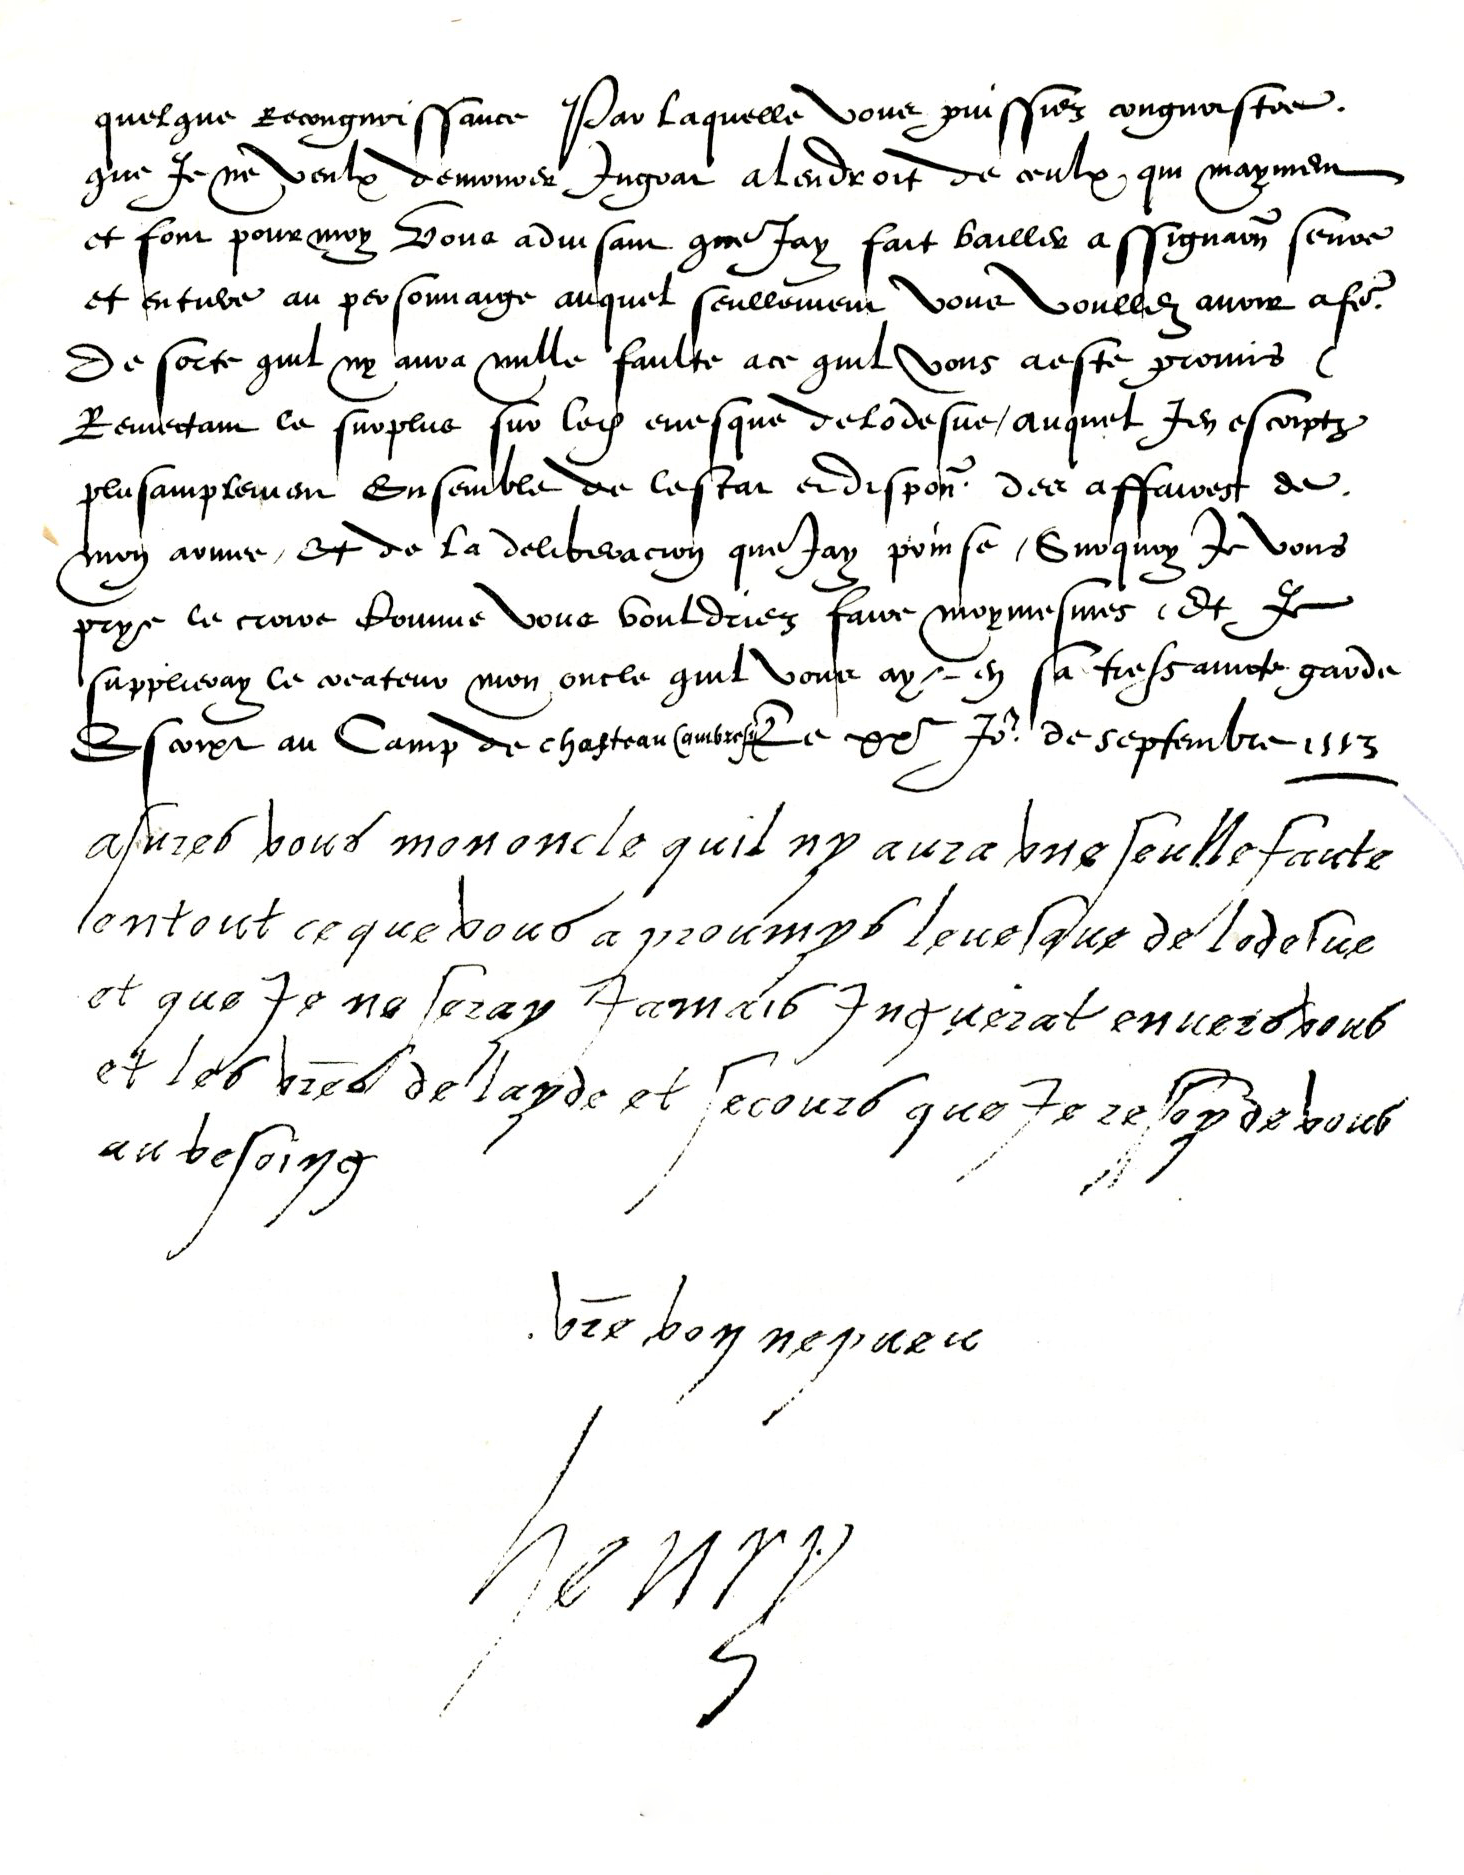 quelque Recongnoissance Par laquelle vous puissiez congnoistre.
que Je ne veulx demourer Ingrat alendroit de ceulx qui mayment
et font pour moy Vous advisant que Jay fait bailler assignaōn seure
et entiere au personnaige auquel seullement vous voullez avoir afe.
De sorte quil ny aura nulle faulte ace quil vous aeste promis (
Remectant le surplus sur led evesque delodesve / auquel Jen escriptz
plusamplement Ensemble de lestat et dispon. des affaires de.
mon armee / Et de la deliberacion que Jay prinse / Surquoy Je vous
prye le croire Comme vous vouldriez faire moymesmes / Et Je
suppliray le createur mon oncle quil vous ayt en sa tressaincte garde
Escript au Camp de chasteau Cambresy Le xxe Jor. de septembre 1553
asures vous mon oncle quil ny aura vne seulle faute
entout ce que vous a proumys levesque de lodesve
et que Je ne seray Jamais Inguerat envers vous
et les vr̄es de layde et secours que Je resoy de vous
au besoing
vr̄e bon nepueu
henry